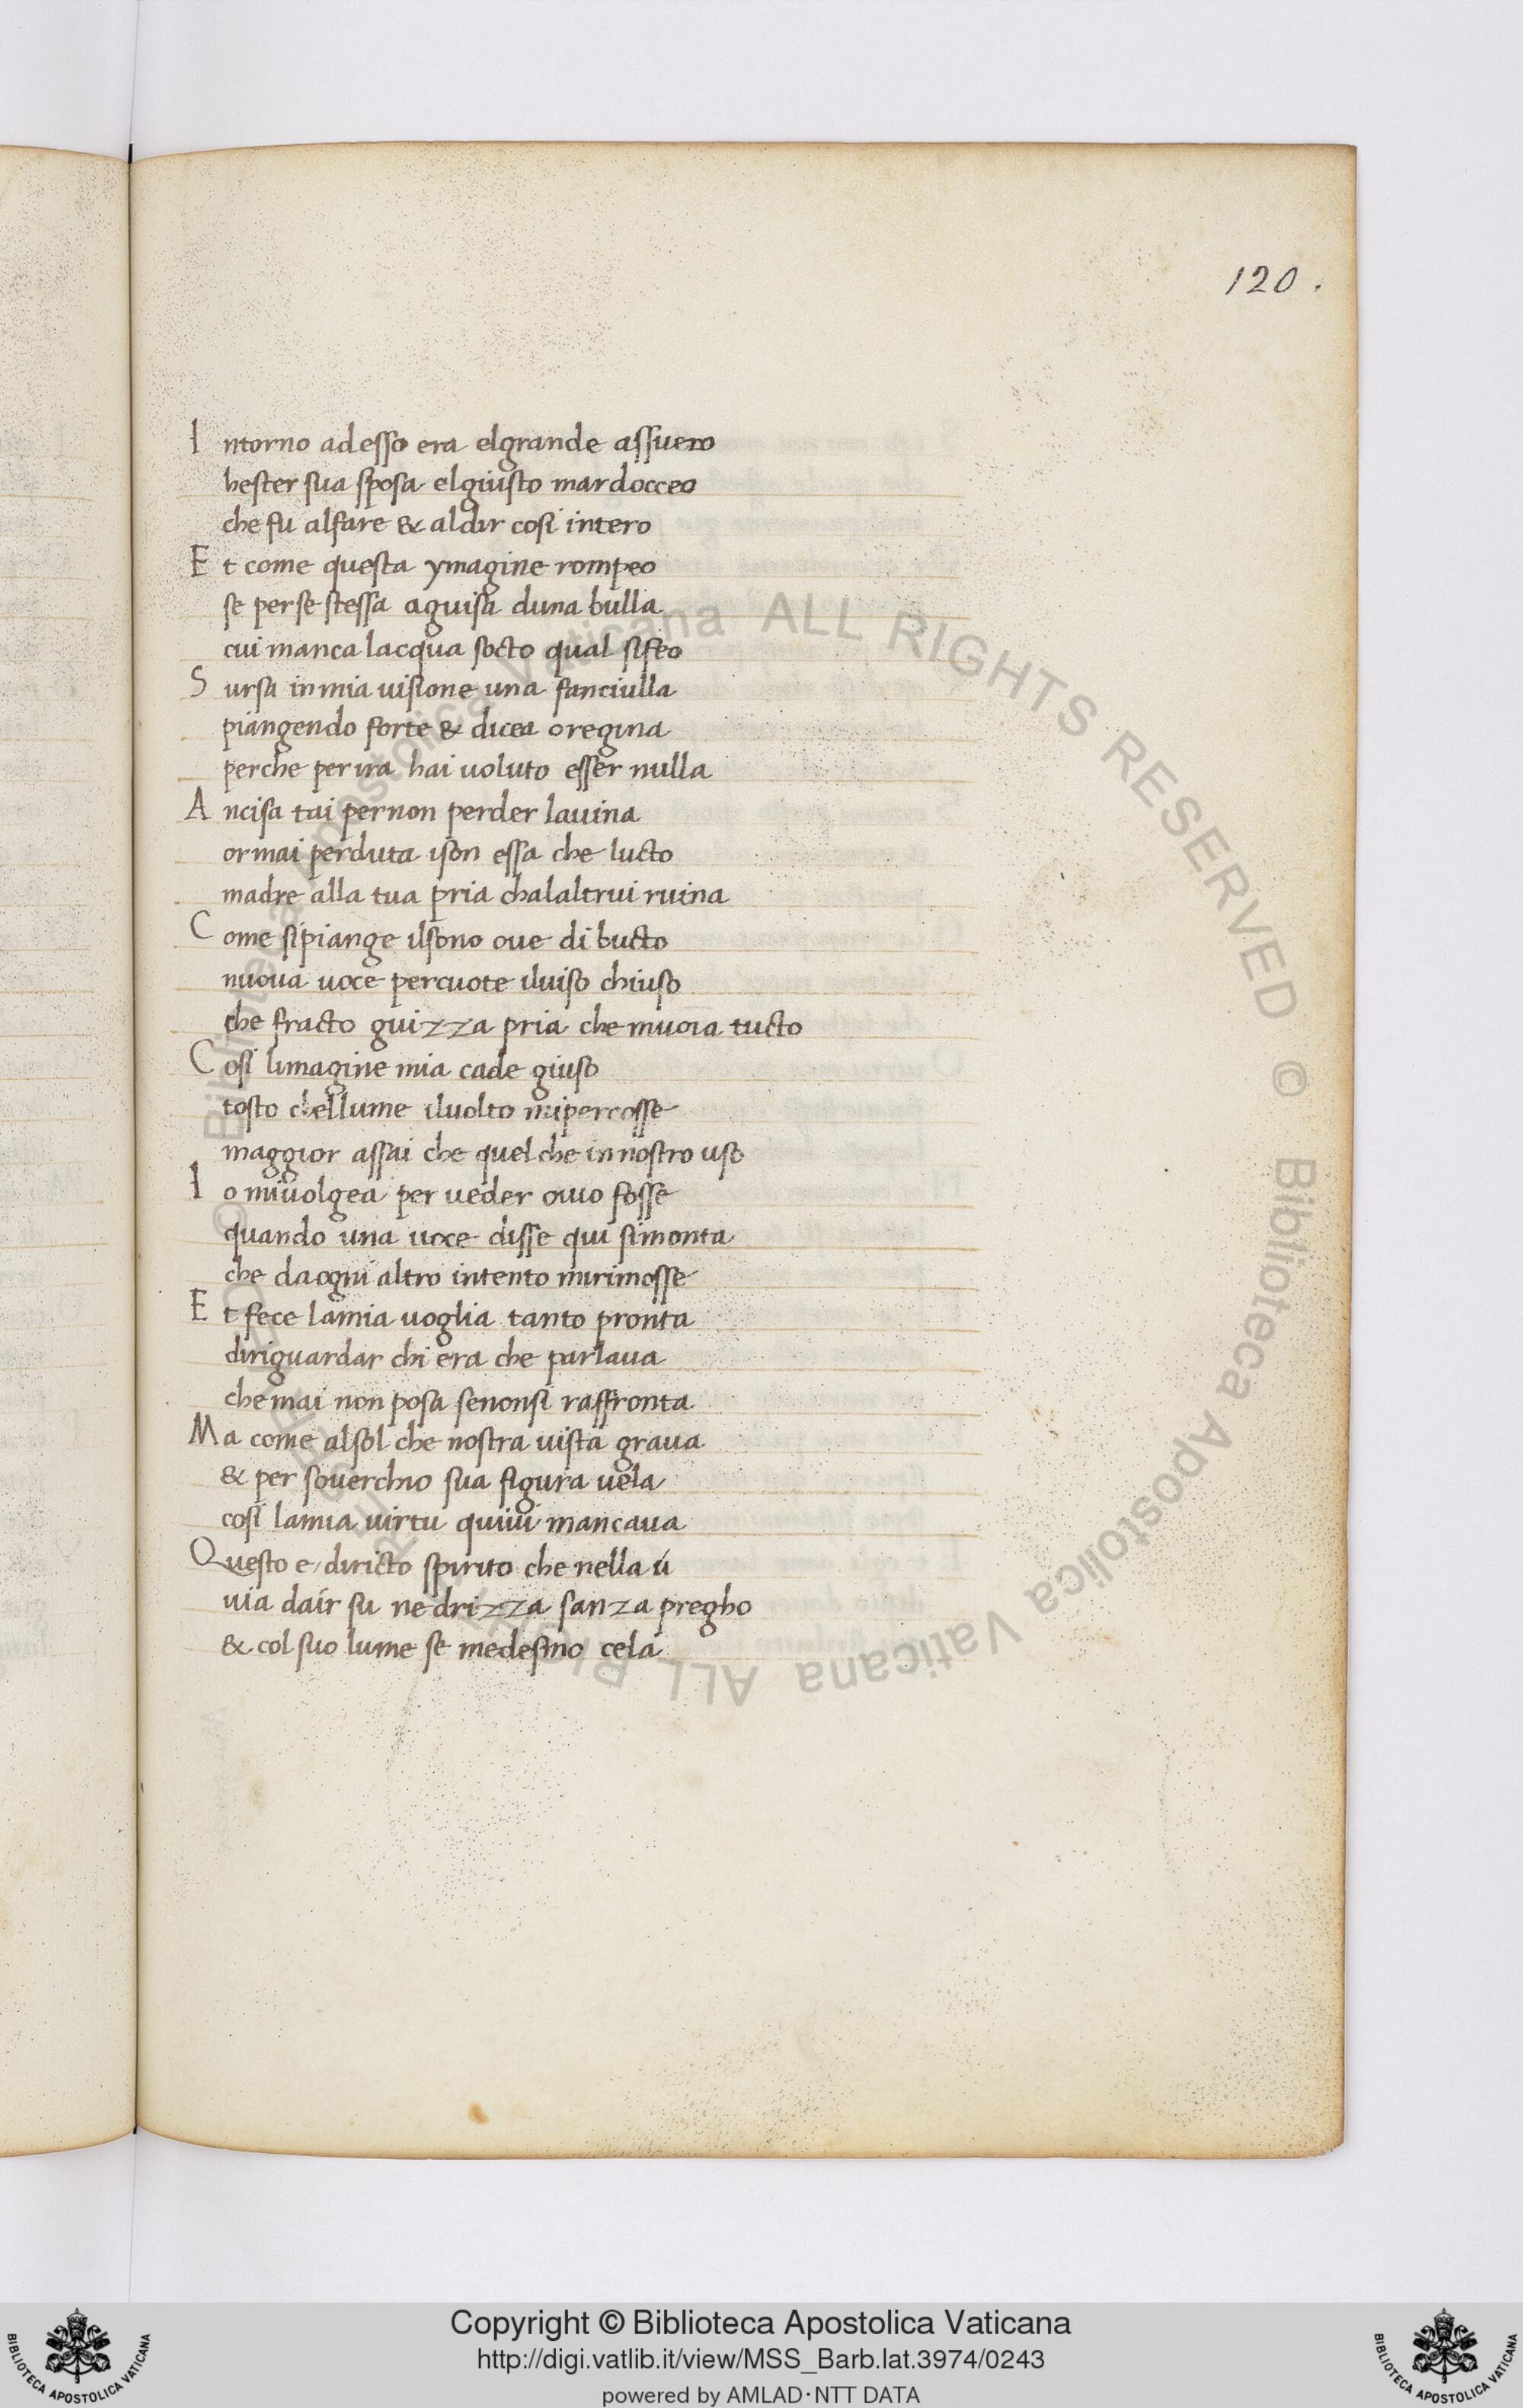 120.
Intorno adesso era elgrande assuero
hester sua sposa elgiusto mardocceo
che fu alfare & aldir cosi intero
Et come questa ymagine rompeo
se perse stessa aguisa duna bulla
cui manca lacqua socto qual sifeo
Sursa inmia uisione una fanciulla
piangendo forte & dicea oregina
perche perira hai uoluto esser nulla
Ancisa tai pernon perder lauina
ormai perduta ison essa che lucto
madre alla tua pria chalaltrui ruina
Come sipiange ilsono oue di bucto
nuoua uoce percuote iluiso chiuso
che fracto guizza pria che muoia tucto
Cosi limagine mia cade giuso
tosto chellume iluolto mipercosse
maggior assai che quel che innostro uso
Io miuolgea per ueder ouio fosse
quando una uoce disse qui simonta
che daogni altro intento mirimosse
Et fece lamia uoglia tanto pronta
diriguardar chi era che parlaua
che mai non posa senonsi raffronta
Ma come alsol che nostra uista graua
& per souerchio sua figura uela
cosi lamia uirtu quiui mancaua
Questo e diricto spirito che nella ú
uia dair su ne drizza sanza pregho
& col suo lume se medesmo cela
Copyright © Biblioteca Apostolica Vaticana
http://digi.vatlib.it/view/MSS_Barb.lat.3974/0243
powered by AMLAD·NTT DATA
BIBLIOTECA APOSTOLICA VATICANA
BIBLIOTECA APOSTOLICA VATICANA
© Biblioteca Apostolica Vaticana ALL RIGHTS RESERVED © Biblioteca Apostolica Vaticana ALL RIGHTS RESERVED